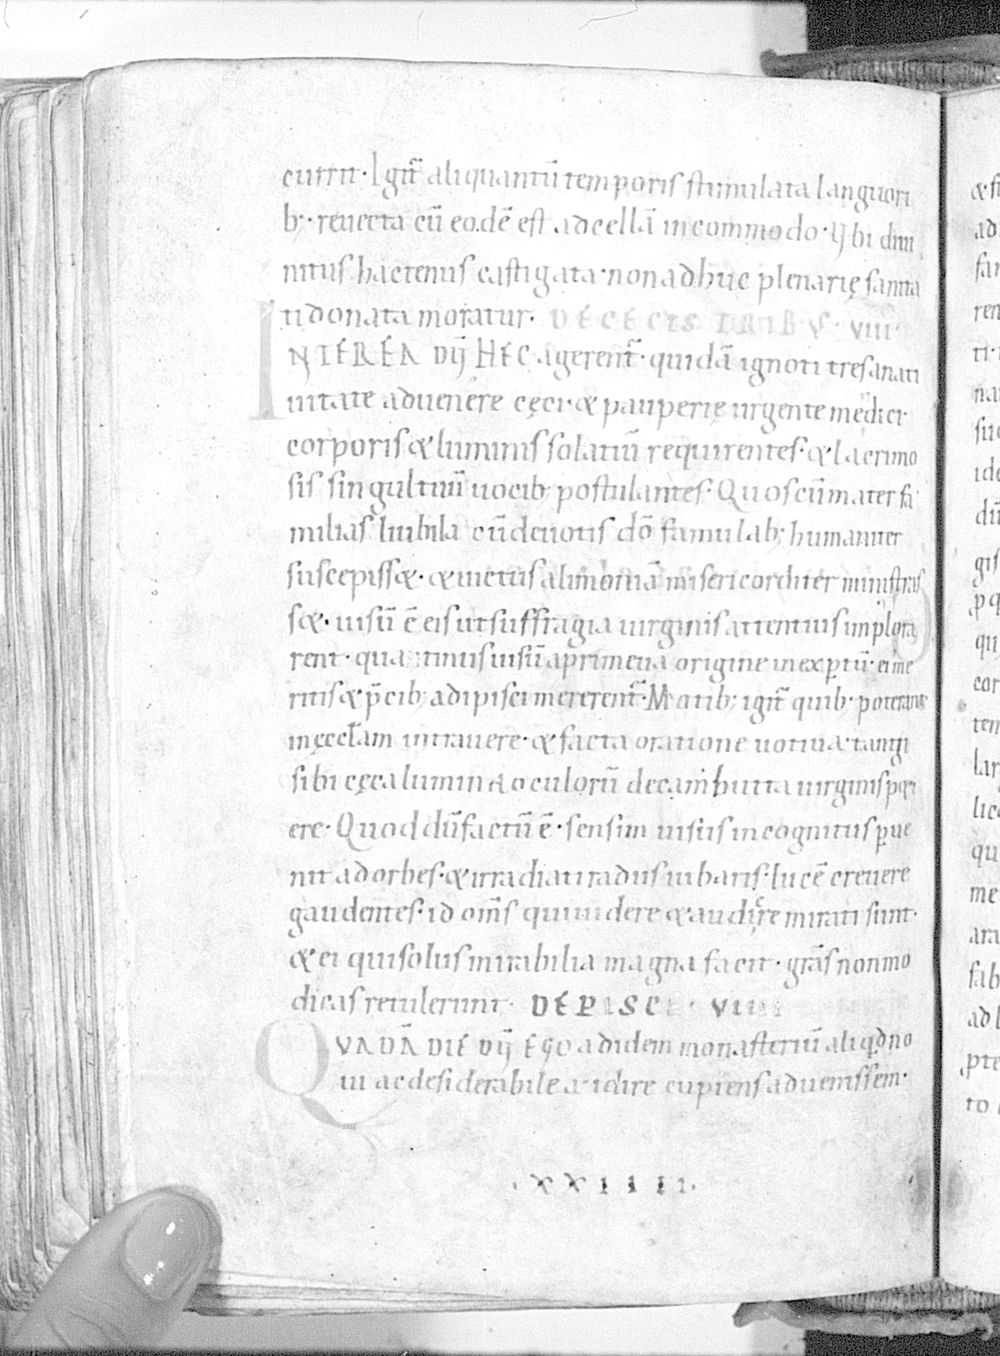 currit· Igit̄ aliquantū temporis stimulata languori
b;· reuecta cū eodē est ad cellā incommodo· Vbi diui
nitus hactenus castigata· non adhuc plenarię sanita
ti donata moratur· DE CECIS TRIBVS· VIII·
INTEREA DŪ HEC agerent̄· quidā ignoti tres a nati
uitate aduenere cęci· & pauperię urgente medici
corporis & luminis solatiū requirentes· & lacrimo
sis singultuū uocib; postulantes· Quos cū mater fa
milias liubila cū deuotis dō famulab; humaniter
suscepiss&· & uictus alimoniā misericorditer ministras
s&· uisū ē eis ut suffragia uirginis attentius implora
rent· quatinus uisū a primeua origine inexptū· ei me
ritis & p̄cib; adipisci mererent̄· Motib; igit̄ quib; poterant
in ęccl̄am intrauere· & facta oratione uotiua· tangi
sibi cęca lumina oculorū de cambutta uirginis pq̄si
ere· Quod dū factū ē· sensim uisus incognitus pue
nit ad orbes· & irradiati radiis iubaris· lucē creuere
gaudentes· id om̄s qui uidere & audire mirati sunt·
& ei qui solus mirabilia magna facit· grās non mo
dicas retulerunt· DE PISCE· VIIII
QVADĀ DIE DŪ EGO ad idem monasteriū aliqd no
ui ac desiderabile audire cupiens aduenissem·
·XXIIII·
& si
ad
far
ren
ti·
na
suc
ide
dū
gis
pq
qu
cor
tem
lar
lic
qu
me
ara
fab
ad l
pte
to